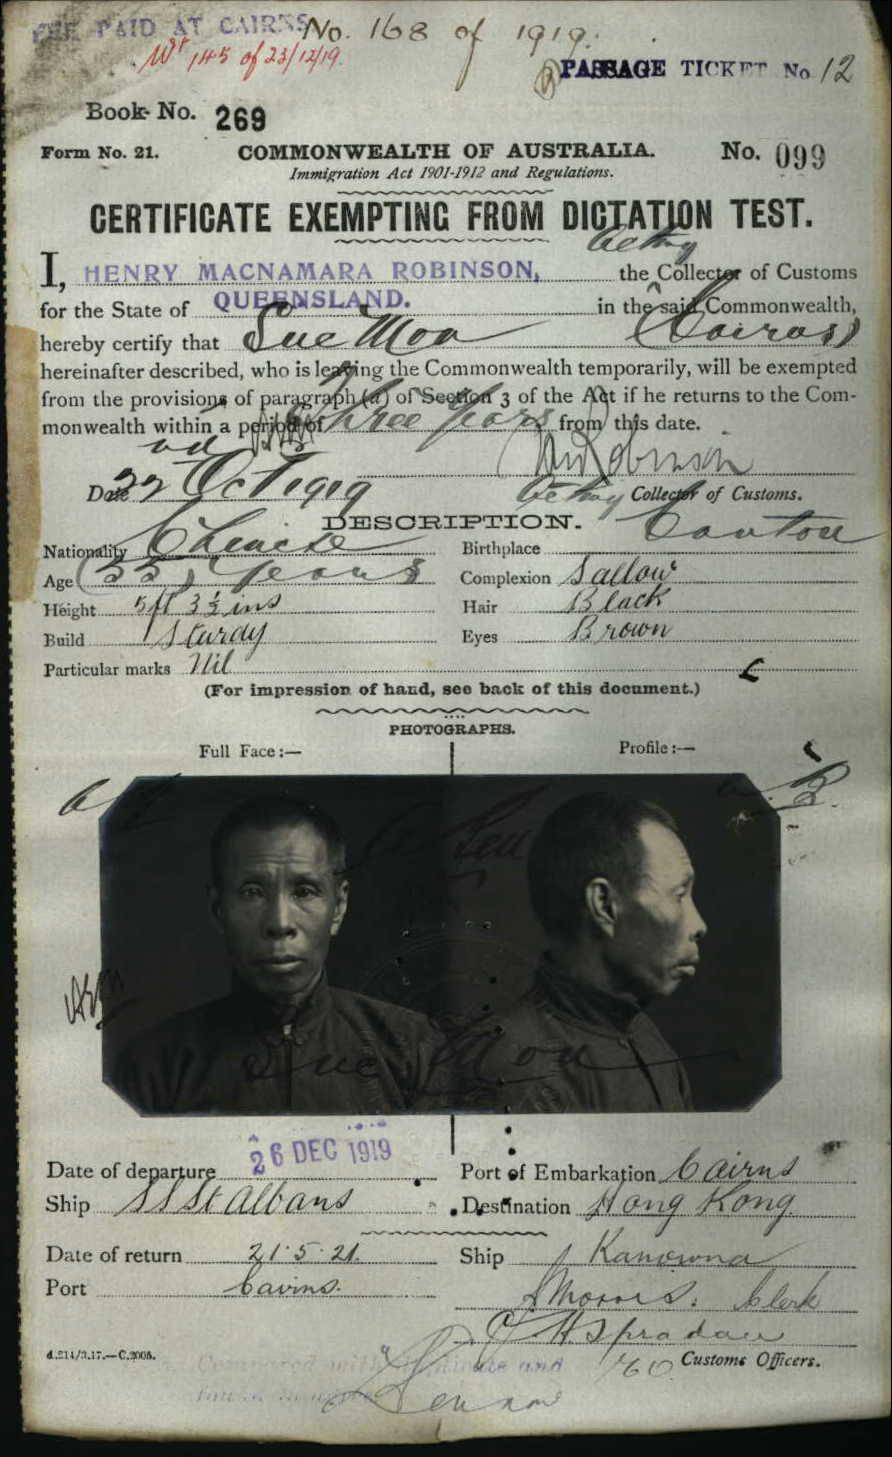 FEE PAID AT CAIRNS No. 168 of 1919.
Wt 145 of 23/12/19.
PASSAGE TICKET No 12
Book No. 269
Form No. 21. COMMONWEALTH OF AUSTRALIA. No. 099
Immigration Act 1901-1912 and Regulations.
CERTIFICATE EXEMPTING FROM DICTATION TEST.
Acting
I, HENRY MACNAMARA ROBINSON, the Collector of Customs
for the State of QUEENSLAND. in the said Commonwealth,
hereby certify that Sue Moa (Cairns)
hereinafter described, who is leaving the Commonwealth temporarily, will be exempted
from the provisions of paragraph (a) of Section 3 of the Act if he returns to the Com-
monwealth within a period of Three Years from this date.
Date 22nd Oct 1919 Robinson
Acting Collector of Customs.
DESCRIPTION.
Nationality Chinese Birthplace Canton
Age (55) years Complexion Sallow
Height 5ft 3½ ins Hair Black
Build Sturdy Eyes Brown
Particular marks Nil
(For impression of hand, see back of this document.)
PHOTOGRAPHS.
Full Face:— Profile:—
Sue Moa
Date of departure 26 DEC 1919 Port of Embarkation Cairns
Ship SS St Albans Destination Hong Kong
Date of return 21.5.21. Ship Kanowna
Port Cairns.
Clerk
d.214/3.17.—C.2005. Customs Officers.